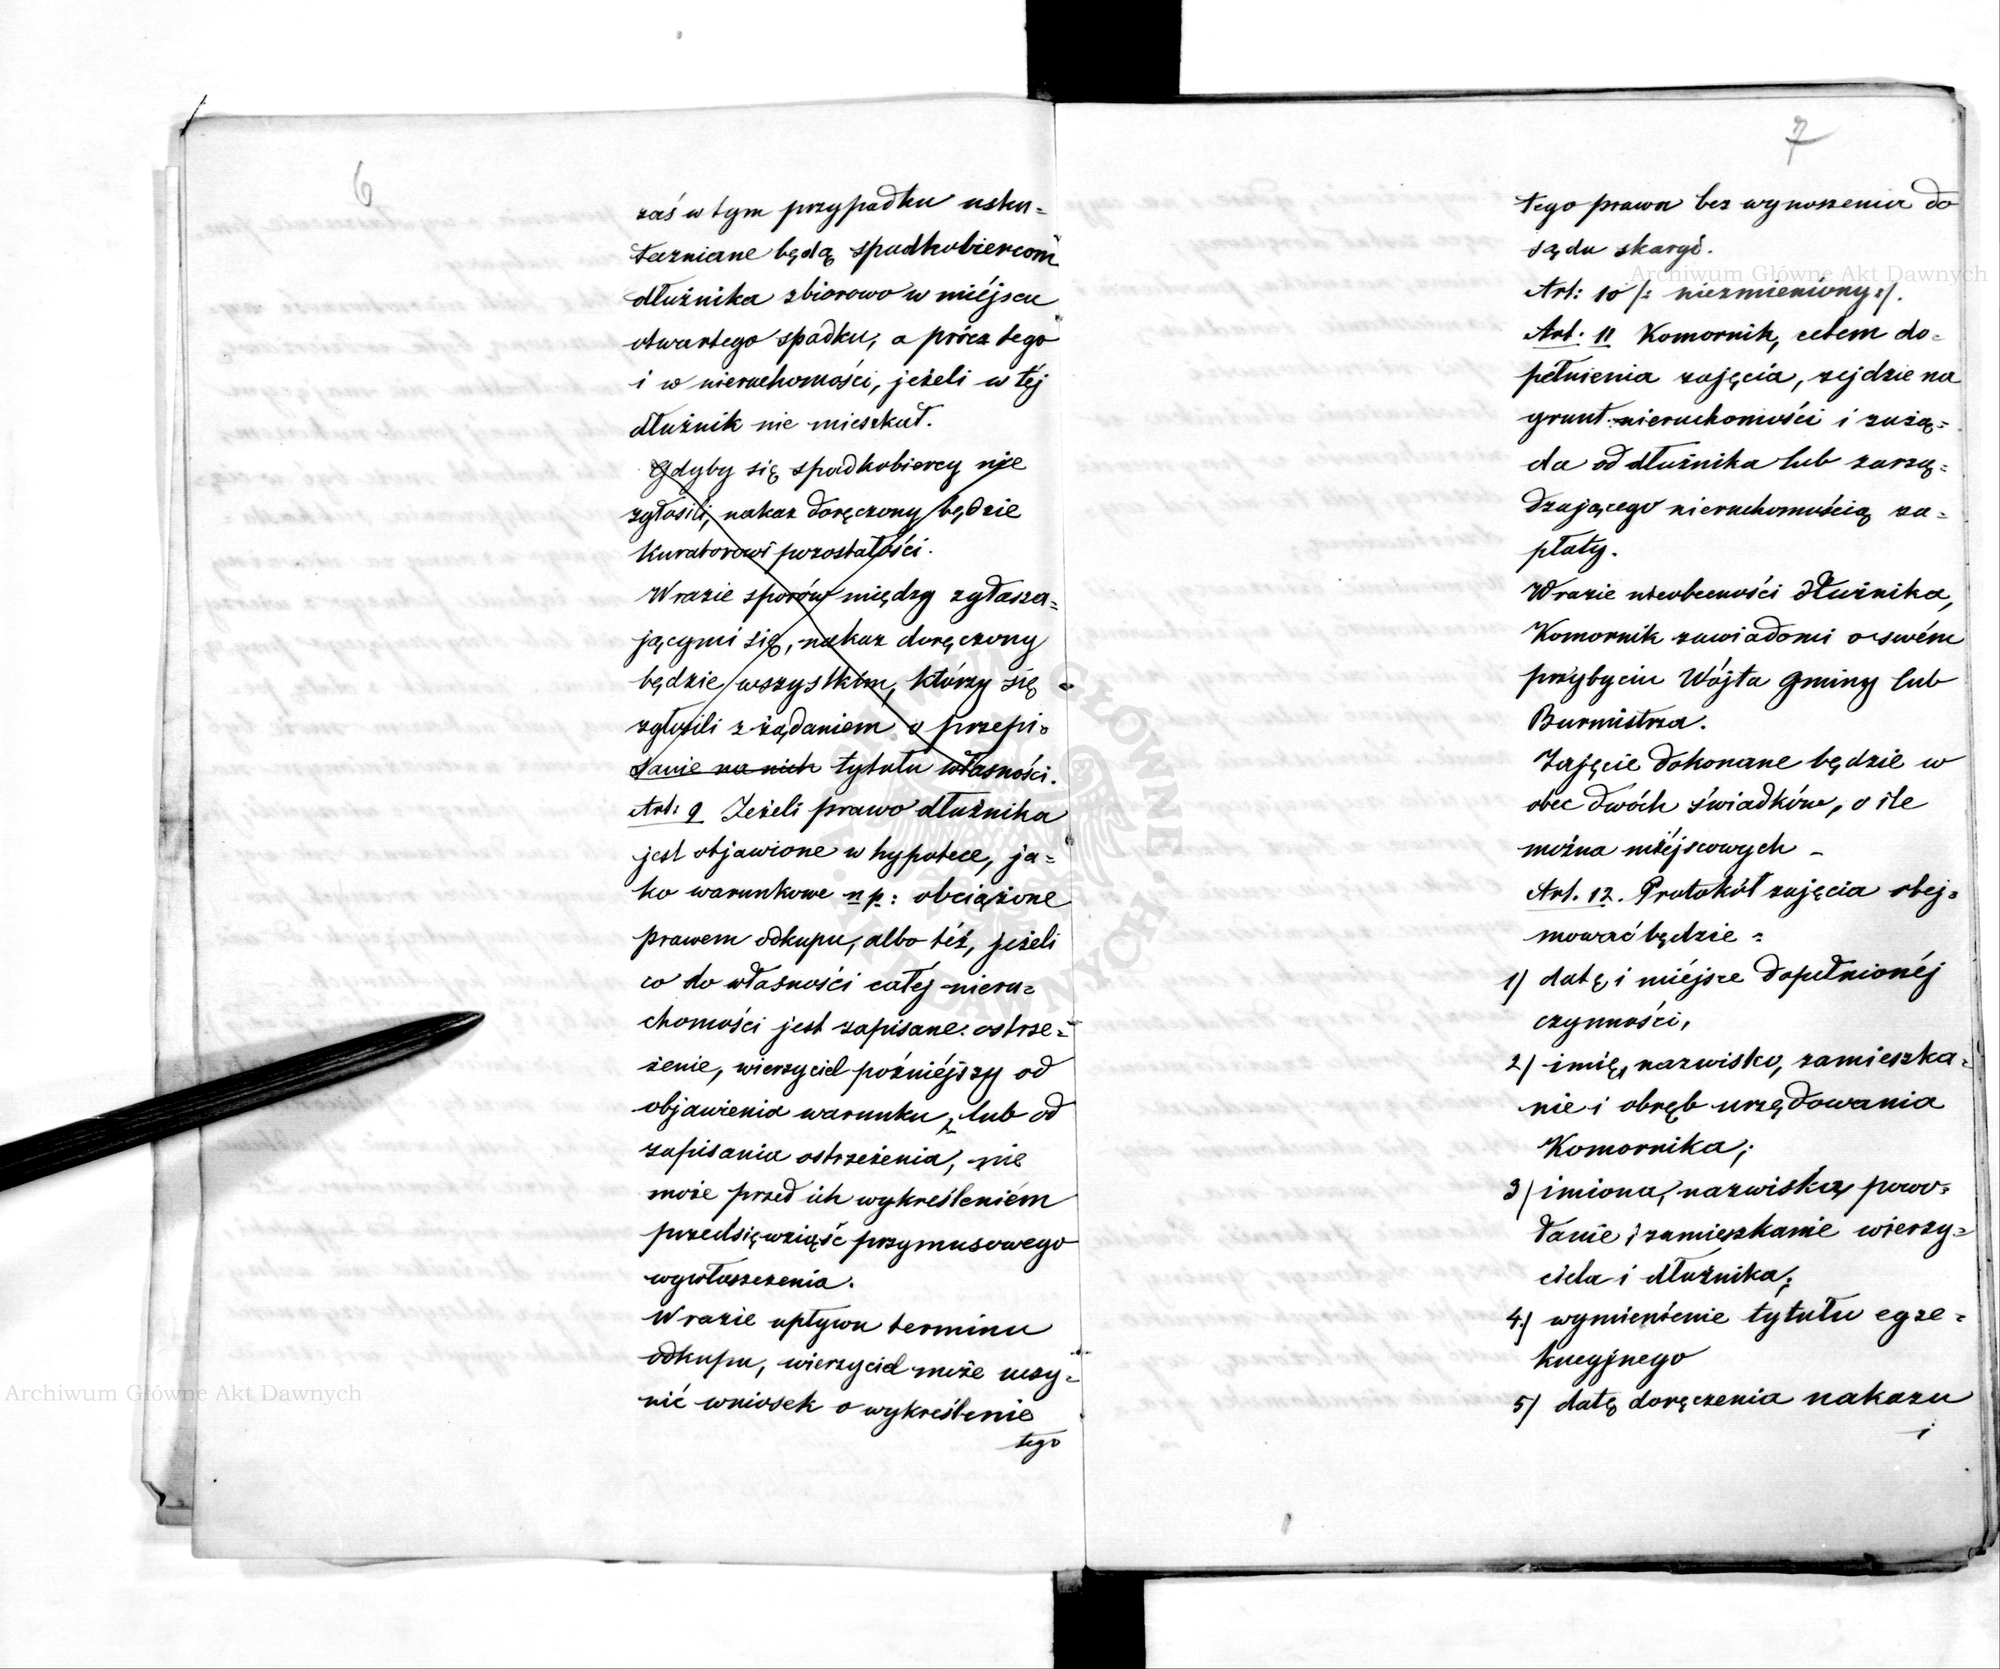 6
zaś w tym przypadku usku=
teczniane będą spadkobiercom
dłużnika zbiorowo w miéjscu
otwartego spadku, a prócz tego
i w nieruchomości, jeżeli w téj
dłużnik nie mieszkał.
Gdyby się spadkobiercy nie
zgłosili, nakaz doręczony będzie
Kuratorowi pozostałości.
W razie sporów między zgłasza=
jącymi się, nakaz doręczony
będzie wszystkim, którzy się
zgłosili z żądaniem o przepi=
sanie na nich tytułu własności.
Art: 9 Jeżeli prawo dłużnika
jest objawione w hypotece, ja=
ko warunkowe np: obciążone
prawem odkupu, albo téż, jeżeli
co do własności całéj nieru=
chomości jest zapisane ostrze=
żenie, wierzyciel późniéjszy od
objawienia warunku, lub od
zapisania ostrzeżenia, nie
może przed ich wykreśleniém
przedsięwziąść przymusowego
wywłaszczenia.
W razie upływu terminu
odkupu, wierzyciel może uczy=
nić wniosek o wykreślenie
tego
7
tego prawa bez wynoszenia do
sądu skargi.
Art: 10 /: niezmieniony :/.
Art: 11 Komornik, celem do=
pełnienia zajęcia, zejdzie na
grunt nieruchomości i zażą=
da od dłużnika lub zarzą=
dzającego nieruchomością za=
płaty.
W razie nieobecności dłużnika,
Komornik zawiadomi o swém
przybyciu Wójta gminy lub
Burmistrza.
Zajęcie dokonane będzie w
obec dwóch świadków, o ile
można miéjscowych –
Art. 12. Protokół zajęcia obej=
mować będzie =
1/ datę i miéjsce dopełnionéj
czynności,
2/ imię, nazwisko, zamieszka=
nie i obręb urzędowania
Komornika;
3/ imiona, nazwiska, powo=
łanie i zamieszkanie wierzy=
ciela i dłużnika;
4/ wymienienie tytułu egze=
kucyjnego
5/ datę doręczenia nakazu
i
Archiwum Główne Akt Dawnych
Archiwum Główne Akt Dawnych